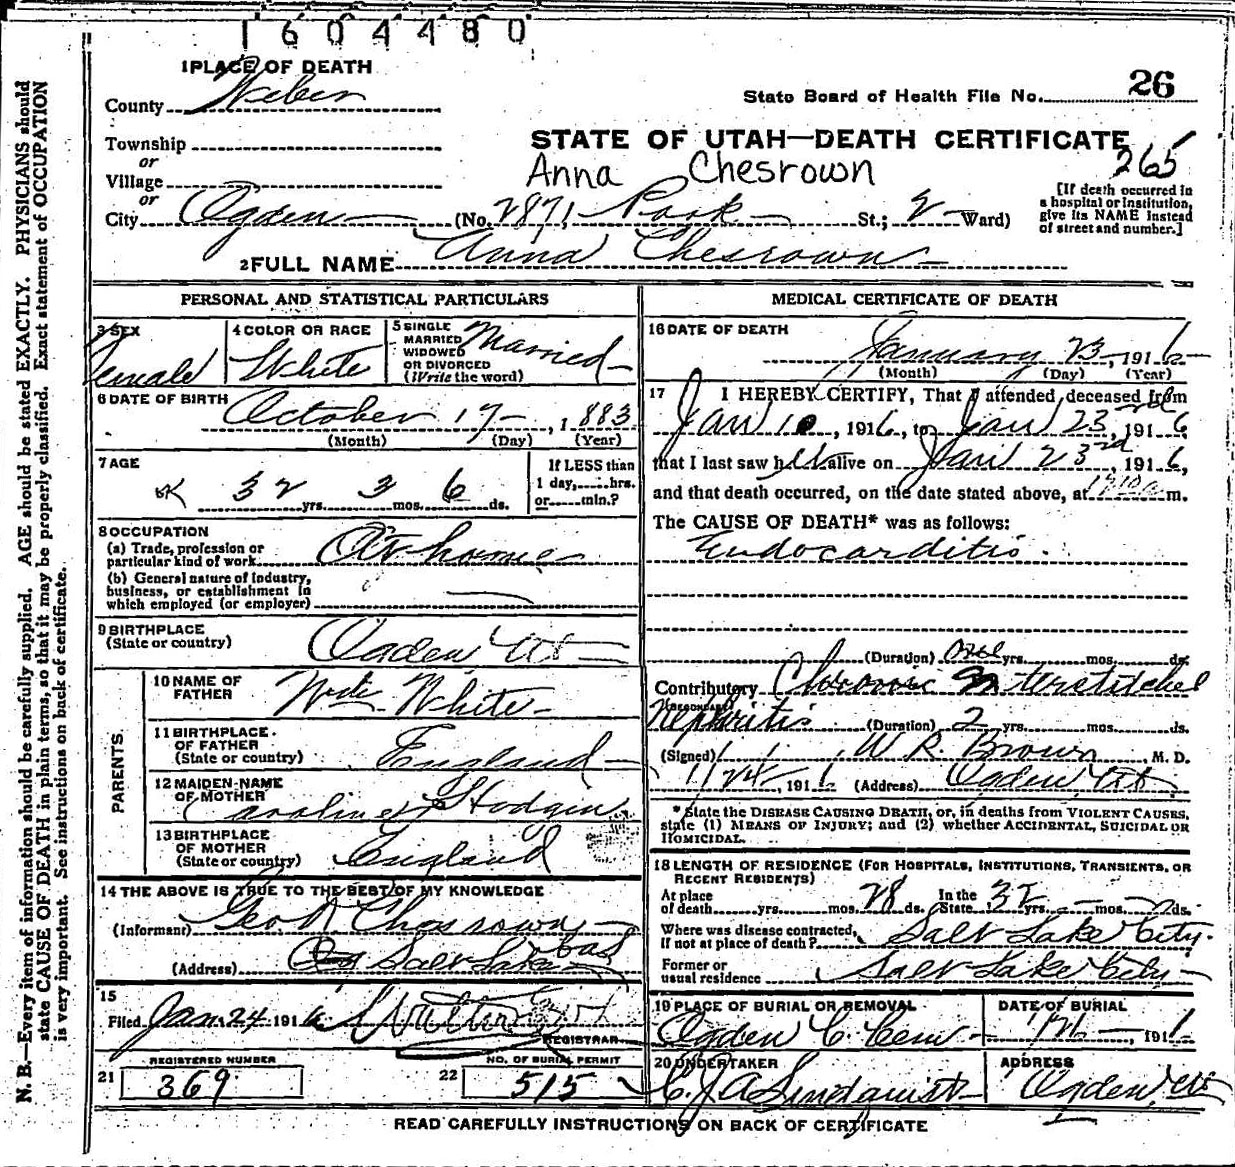 1604480
1 PLACE OF DEATH
County Weber
State Board of Health File No. 26
Township
or
Village
or
STATE OF UTAH—DEATH CERTIFICATE
265
Anna Chesrown
City Ogden (No. 2871 Park St.; 2 Ward)
[If death occurred in
a hospital or institution,
give its NAME instead
of street and number.]
2 FULL NAME Anna Chesrown
PERSONAL AND STATISTICAL PARTICULARS
3 SEX
Female
4 COLOR OR RACE
White
5 SINGLE
MARRIED
WIDOWED
OR DIVORCED
(Write the word)
Married
6 DATE OF BIRTH
October 17, 1883
(Month) (Day) (Year)
7 AGE
32 yrs. 3 mos. 6 ds.
If LESS than
1 day, hrs.
or min.?
8 OCCUPATION
(a) Trade, profession or
particular kind of work At home
(b) General nature of industry,
business, or establishment in
which employed (or employer)
9 BIRTHPLACE
(State or country) Ogden Ut
PARENTS
10 NAME OF
FATHER Wm White
11 BIRTHPLACE
OF FATHER
(State or country) England
12 MAIDEN NAME
OF MOTHER Caroline Hodgin
13 BIRTHPLACE
OF MOTHER
(State or country) England
14 THE ABOVE IS TRUE TO THE BEST OF MY KNOWLEDGE
(Informant) Geo Chesrown
(Address) Salt Lake
15
Filed Jan. 24 1916
REGISTRAR
REGISTERED NUMBER
21 369
NO. OF BURIAL PERMIT
22 515
MEDICAL CERTIFICATE OF DEATH
16 DATE OF DEATH
January 23, 1916
(Month) (Day) (Year)
17 I HEREBY CERTIFY, That I attended deceased from
Jan 10, 1916, to Jan 23rd, 1916
that I last saw her alive on Jan 23rd, 1916,
and that death occurred, on the date stated above, at m.
The CAUSE OF DEATH* was as follows:
Endocarditis.
(Duration) One yrs. mos. ds.
Contributory Chronic Interstitchel
(SECONDARY)
Nephritis (Duration) 2 yrs. mos. ds.
(Signed) W. R. Brown, M. D.
1/24, 1916 (Address) Ogden, Ut
*State the DISEASE CAUSING DEATH, or, in deaths from VIOLENT CAUSES,
state (1) MEANS OF INJURY; and (2) whether ACCIDENTAL, SUICIDAL OR
HOMICIDAL.
18 LENGTH OF RESIDENCE (FOR HOSPITALS, INSTITUTIONS, TRANSIENTS, OR
RECENT RESIDENTS)
At place
of death yrs. mos. 28 ds. In the
State 32 yrs. mos. ds.
Where was disease contracted,
if not at place of death? Salt Lake City.
Former or
usual residence Salt Lake City
19 PLACE OF BURIAL OR REMOVAL
Ogden C. Cem
DATE OF BURIAL
1/26, 191
20 UNDERTAKER
C. J. A. Lindquist
ADDRESS
Ogden, Ut
READ CAREFULLY INSTRUCTIONS ON BACK OF CERTIFICATE
N. B.—Every item of information should be carefully supplied. AGE should be stated EXACTLY. PHYSICIANS should
state CAUSE OF DEATH in plain terms, so that it may be properly classified. Exact statement of OCCUPATION
is very important. See instructions on back of certificate.